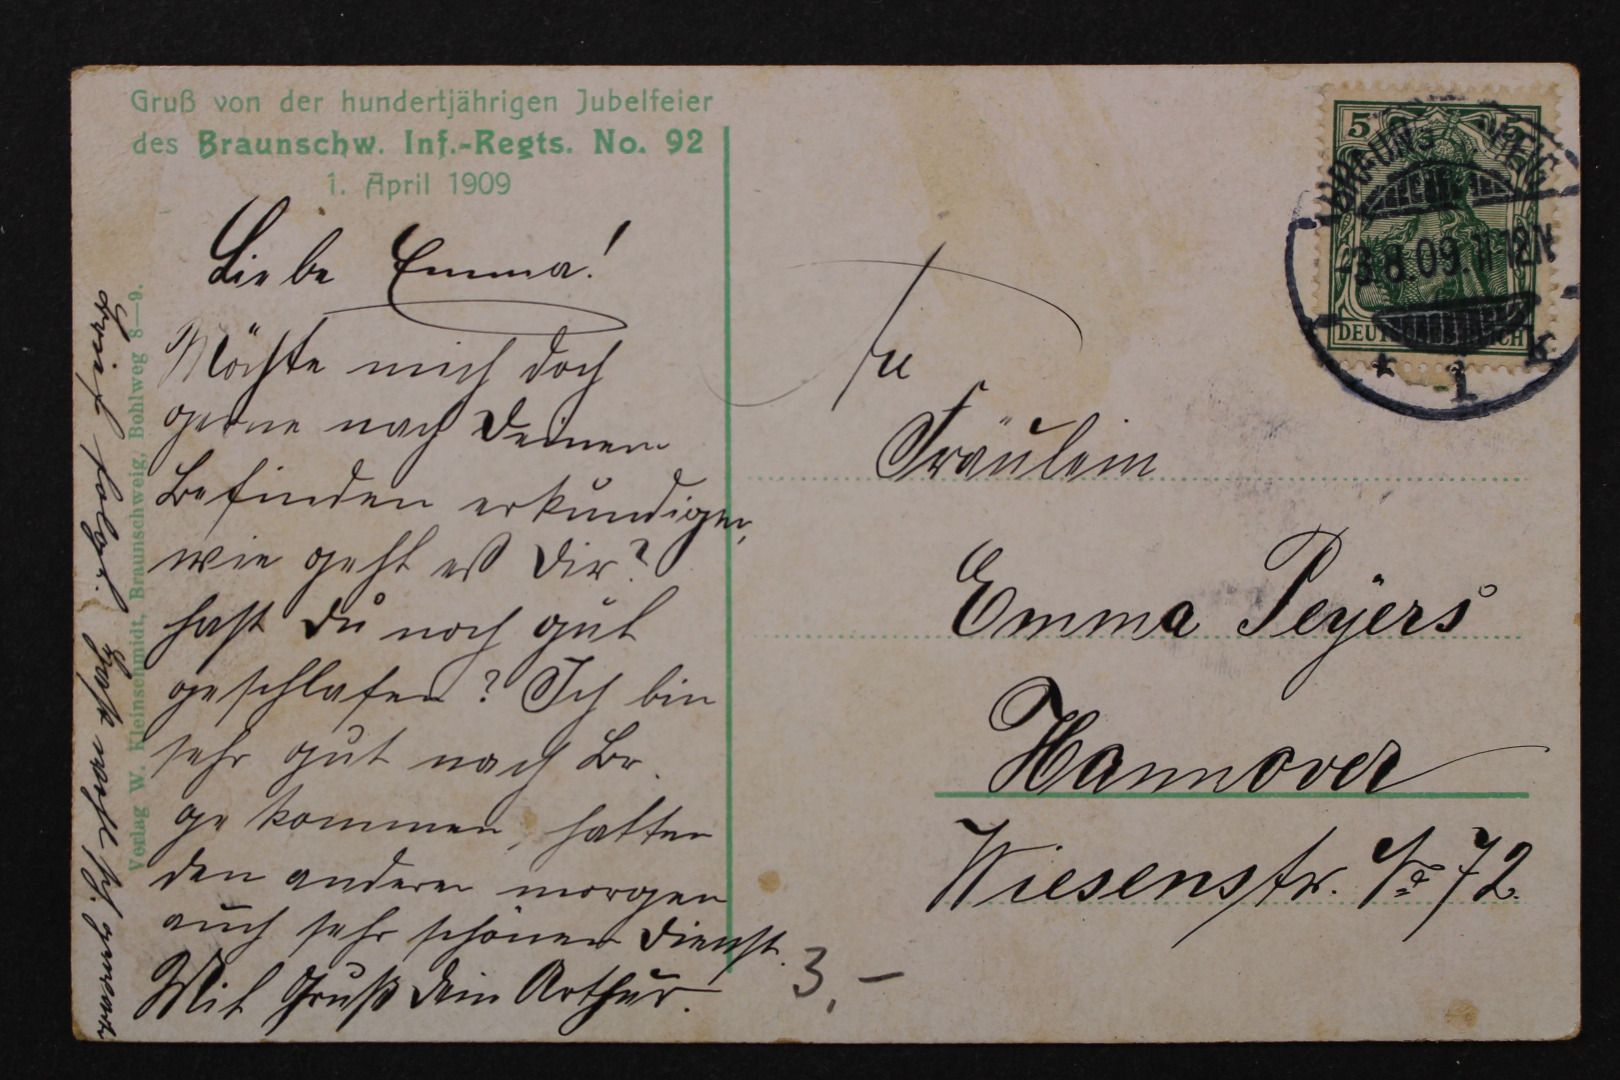 Gruß von der hundertjährigen Jubelfeier
des Braunschw. Inf.-Regts. No. 92
1. April 1909
Liebe Emma!
Möchte mich doch
gerne nach Deinem
Befinden erkundigen,
wie geht eß Dir?
hast Du noch gut
geschlafen? Ich bin
sehr gut nach Br.
gekommen, hatten
den anderen morgen
auch sehr schönen Dienst.
Mit Gruß Dein Arthur.
Brief folgt.
Verlag W. Kleinschmidt, Braunschweig, Bohlweg 8—9.
5 5
DEUTSCHES REICH
BRAUNSCHWEIG
-3.8.09.11-12N
* 1 k
An
Fräulein
Emma Peÿers
Hannover
Wiesenstr. No 72.
3,-